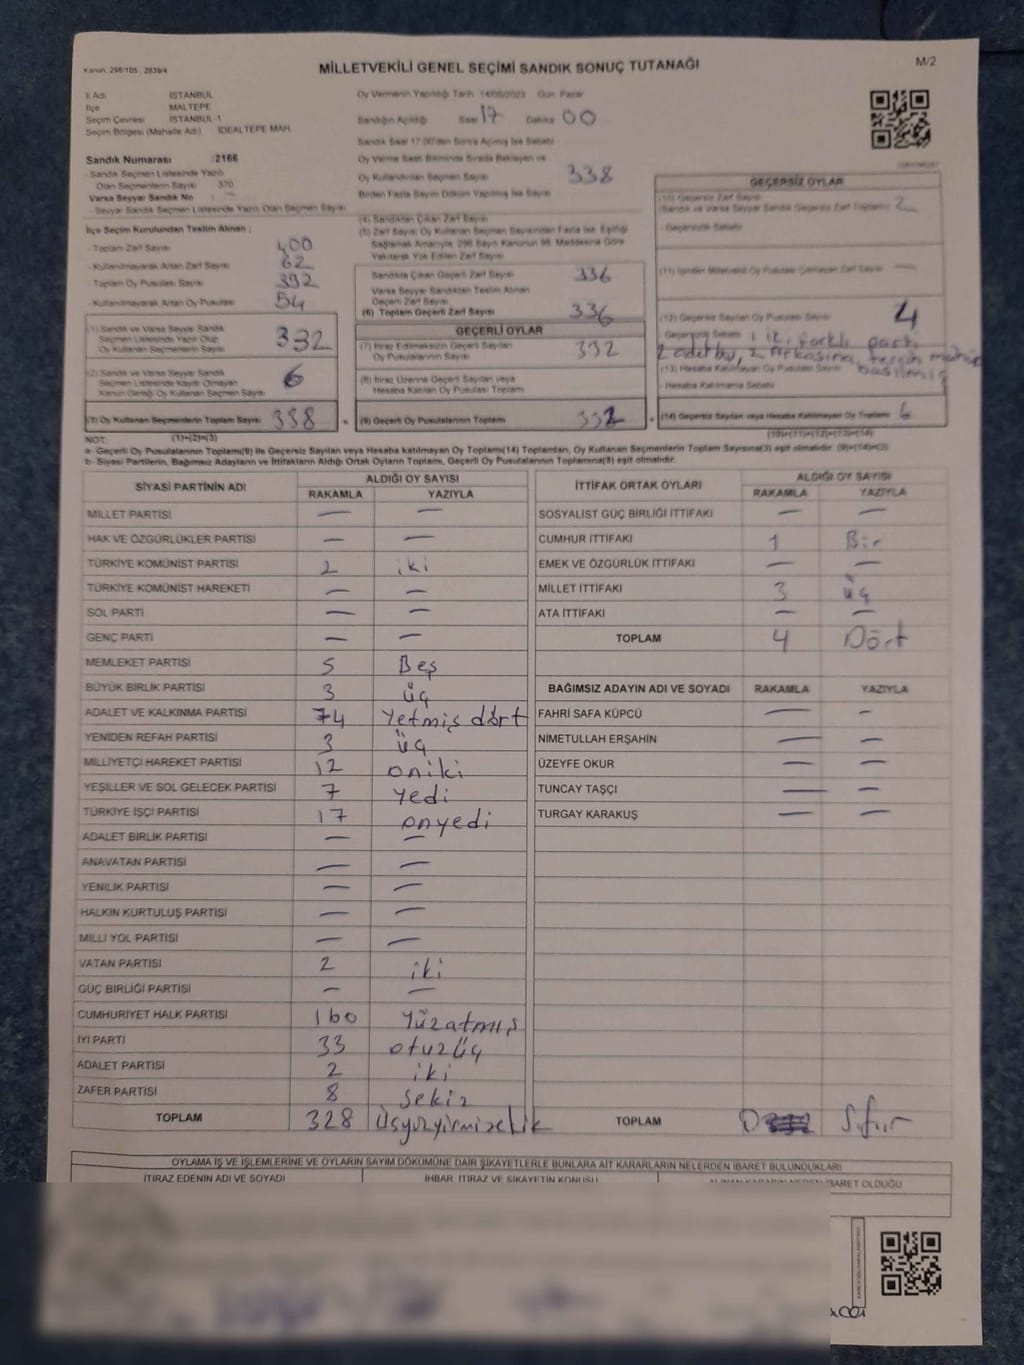 Kanun, 298/105 , 2839/4
MİLLETVEKİLİ GENEL SEÇİMİ SANDIK SONUÇ TUTANAĞI
M/2
İl Adı İSTANBUL
İlçe MALTEPE
Seçim Çevresi İSTANBUL-1
Seçim Bölgesi (Mahalle Adı) İDEALTEPE MAH.
Oy Vermenin Yapıldığı Tarih 14/05/2023 Gün Pazar
Sandığın Açıldığı Saat 17 Dakika 00
Sandık Saat 17:00'den Sonra Açılmış İse Sebebi
Sandık Numarası :2166
- Sandık Seçmen Listesinde Yazılı
Olan Seçmenlerin Sayısı 370
Varsa Seyyar Sandık No
- Seyyar Sandık Seçmen Listesinde Yazılı Olan Seçmen Sayısı
Oy Verme Saati Bitiminde Sırada Bekleyen ve
Oy Kullandırılan Seçmen Sayısı 338
Birden Fazla Sayım Döküm Yapılmış İse Sayısı
İlçe Seçim Kurulundan Teslim Alınan ;
- Toplam Zarf Sayısı 400
- Kullanılmayarak Artan Zarf Sayısı 62
- Toplam Oy Pusulası Sayısı 392
- Kullanılmayarak Artan Oy Pusulası 54
(1) Sandık ve Varsa Seyyar Sandık
Seçmen Listesinde Yazılı Olup
Oy Kullanan Seçmenlerin Sayısı 332
(2) Sandık ve Varsa Seyyar Sandık
Seçmen Listesinde Kayıtlı Olmayan
Kanun Gereği Oy Kullanan Seçmen Sayısı 6
(3) Oy Kullanan Seçmenlerin Toplam Sayısı 338
(4) Sandıktan Çıkan Zarf Sayısı
(5) Zarf Sayısı Oy Kullanan Seçmen Sayısından Fazla İse, Eşitliği
Sağlamak Amacıyla, 298 Sayılı Kanunun 98. Maddesine Göre
Yakılarak Yok Edilen Zarf Sayısı
Sandıkta Çıkan Geçerli Zarf Sayısı 336
Varsa Seyyar Sandıktan Teslim Alınan
Geçerli Zarf Sayısı
(6) Toplam Geçerli Zarf Sayısı 336
GEÇERLİ OYLAR
(7) İtiraz Edilmeksizin Geçerli Sayılan
Oy Pusulalarının Toplamı 332
(8) İtiraz Üzerine Geçerli Sayılan veya
Hesaba Katılan Oy Pusulası Toplamı
(9) Geçerli Oy Pusulalarının Toplamı 332
GEÇERSİZ OYLAR
(10) Geçersiz Zarf Sayısı
(Sandık ve Varsa Seyyar Sandık Geçersiz Zarf Toplamı) 2
- Geçersizlik Sebebi
(11) İçinden Milletvekili Oy Pusulası Çıkmayan Zarf Sayısı —
(12) Geçersiz Sayılan Oy Pusulası Sayısı 4
Geçersizlik Sebebi 1 iki farklı parti
2 adet bu, 2 Arkasına tercih mührü basılmış
(13) Hesaba Katılmayan Oy Pusulası Sayısı
- Hesaba Katılmama Sebebi
(14) Geçersiz Sayılan veya Hesaba Katılmayan Oy Toplamı 6
NOT: (1)+(2)=(3) (10)+(11)+(12)+(13)=(14)
a- Geçerli Oy Pusulalarının Toplamı(9) ile Geçersiz Sayılan veya Hesaba katılmayan Oy Toplamı(14) Toplamları, Oy Kullanan Seçmenlerin Toplam Sayısına(3) eşit olmalıdır. (9)+(14)=(3)
b- Siyasi Partilerin, Bağımsız Adayların ve İttifakların Aldığı Ortak Oyların Toplamı, Geçerli Oy Pusulalarının Toplamına(9) eşit olmalıdır.
SİYASİ PARTİNİN ADI ALDIĞI OY SAYISI
RAKAMLA YAZIYLA
MİLLET PARTİSİ — —
HAK VE ÖZGÜRLÜKLER PARTİSİ — —
TÜRKİYE KOMÜNİST PARTİSİ 2 iki
TÜRKİYE KOMÜNİST HAREKETİ — —
SOL PARTİ — —
GENÇ PARTİ — —
MEMLEKET PARTİSİ 5 Beş
BÜYÜK BİRLİK PARTİSİ 3 üç
ADALET VE KALKINMA PARTİSİ 74 Yetmiş dört
YENİDEN REFAH PARTİSİ 3 üç
MİLLİYETÇİ HAREKET PARTİSİ 12 oniki
YEŞİLLER VE SOL GELECEK PARTİSİ 7 Yedi
TÜRKİYE İŞÇİ PARTİSİ 17 onyedi
ADALET BİRLİK PARTİSİ — —
ANAVATAN PARTİSİ — —
YENİLİK PARTİSİ — —
HALKIN KURTULUŞ PARTİSİ — —
MİLLİ YOL PARTİSİ — —
VATAN PARTİSİ 2 iki
GÜÇ BİRLİĞİ PARTİSİ — —
CUMHURİYET HALK PARTİSİ 160 Yüzatmış
İYİ PARTİ 33 otuzüç
ADALET PARTİSİ 2 iki
ZAFER PARTİSİ 8 sekiz
TOPLAM 328 Üçyüzyirmizelik
İTTİFAK ORTAK OYLARI ALDIĞI OY SAYISI
RAKAMLA YAZIYLA
SOSYALİST GÜÇ BİRLİĞİ İTTİFAKI — —
CUMHUR İTTİFAKI 1 Bir
EMEK VE ÖZGÜRLÜK İTTİFAKI — —
MİLLET İTTİFAKI 3 üç
ATA İTTİFAKI — —
TOPLAM 4 Dört
BAĞIMSIZ ADAYIN ADI VE SOYADI RAKAMLA YAZIYLA
FAHRİ SAFA KÜPCÜ — —
NİMETULLAH ERŞAHİN — —
ÜZEYFE OKUR — —
TUNCAY TAŞÇI — —
TURGAY KARAKUŞ — —
TOPLAM 0 Sıfır
OYLAMA İŞ VE İŞLEMLERİNE VE OYLARIN SAYIM DÖKÜMÜNE DAİR ŞİKAYETLERLE BUNLARA AİT KARARLARIN NELERDEN İBARET BULUNDUKLARI
İTİRAZ EDENİN ADI VE SOYADI İHBAR, İTİRAZ VE ŞİKAYETİN KONUSU ALINAN KARARIN NEDEN İBARET OLDUĞU